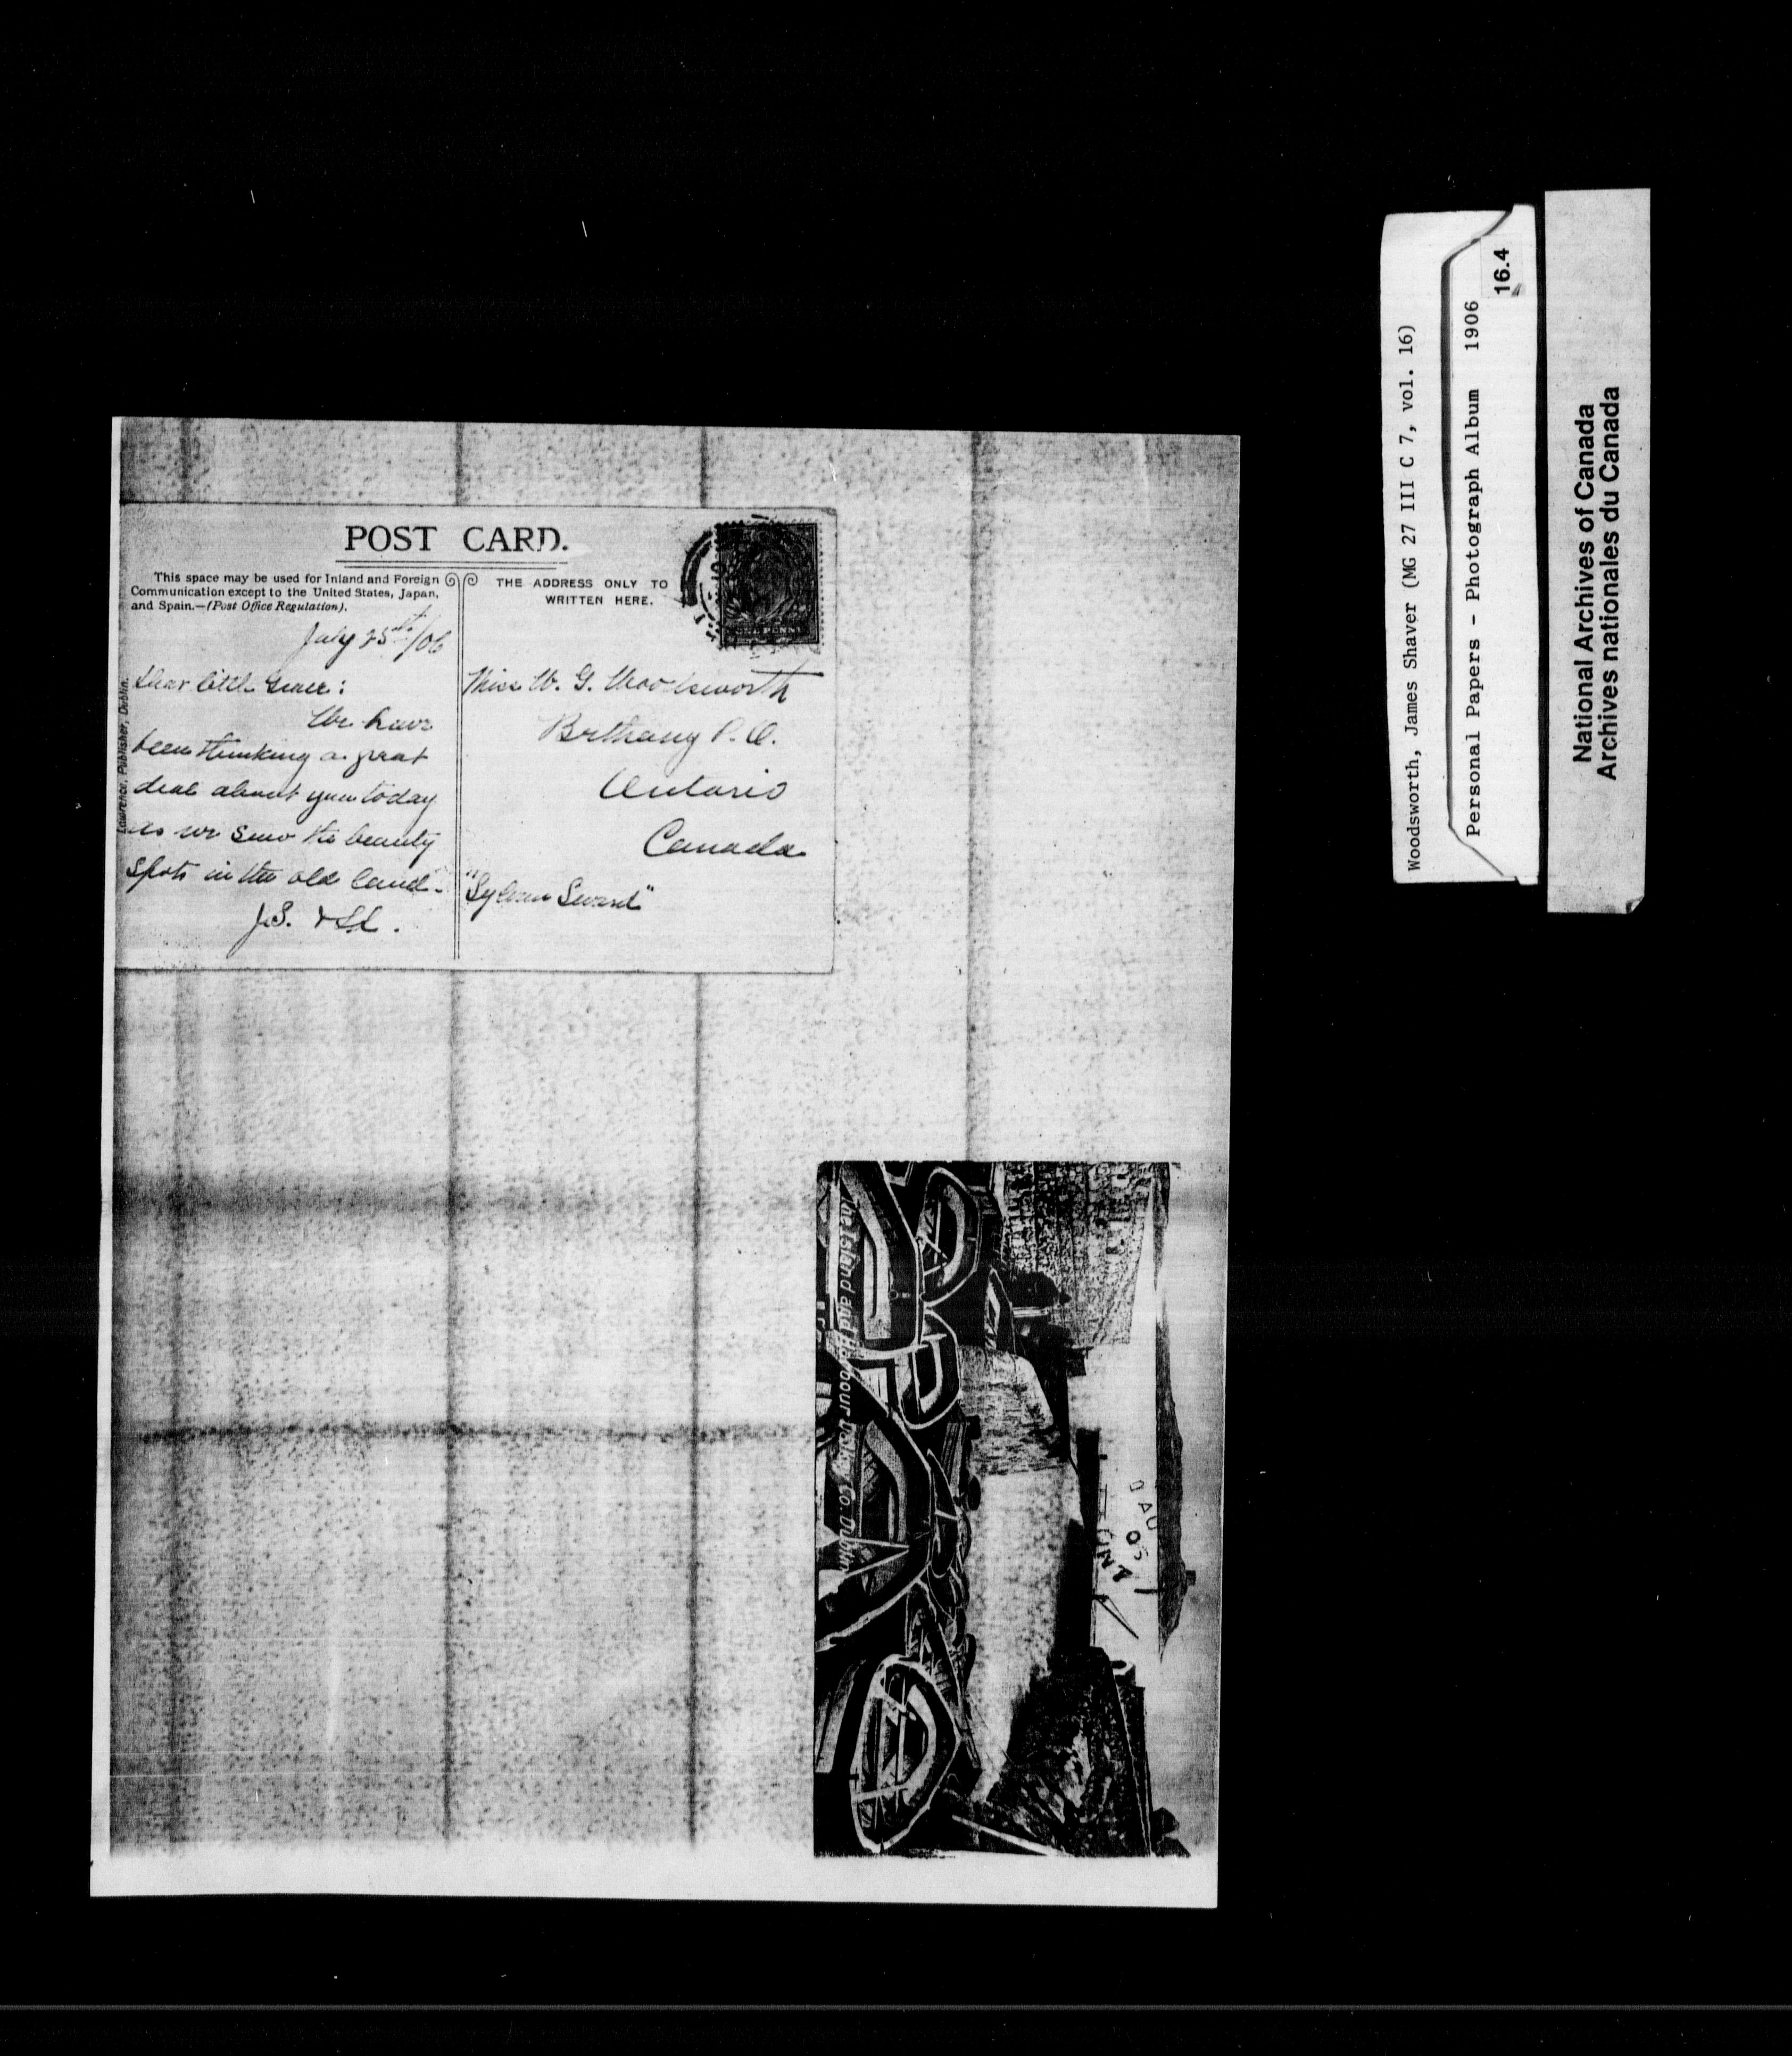 POST CARD.
This space may be used for Inland and Foreign
Communication except to the United States, Japan,
and Spain.—(Post Office Regulation).
THE ADDRESS ONLY TO
WRITTEN HERE.
July 25th/06
Dear little Grace:
We have
been thinking a great
deal about you today
as we saw the beauty
spots in the old land.
J.S. & L.
Lawrence, Publisher, Dublin.
Miss W. G. Woodsworth
Bethany P.O.
Ontario
Canada
"Sylvan Sward"
The Island and Harbour Dalkey Co. Dublin
Woodsworth, James Shaver (MG 27 III C 7, vol. 16)
Personal Papers - Photograph Album 1906
16.4
National Archives of Canada
Archives nationales du Canada